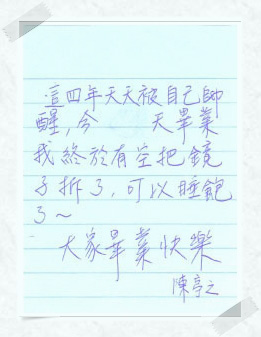 這四年天天被自己帥
醒,今 天畢業
我終於有空把鏡
子拆了,可以睡飽
了~
大家畢業快樂
陳亭之